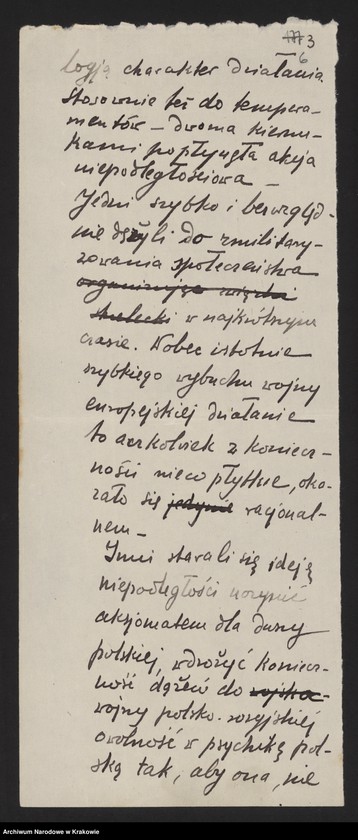 177 3
6
logją charakter działania.
Stosownie też do tempera-
mentów — dwoma kierun-
kami popłynęła akcja
niepodległościowa —
Jedni szybko i bezwzględ-
nie dążyli do zmilitary-
zowania społeczeństwa
organizując związki
strzelecki w najkrótszym
czasie. Wobec istotnie
szybkiego wybuchu wojny
europejskiej działanie
to aczkolwiek z koniecz-
ności nieco płytkie, oka-
zało się jedynie racjonal-
nem —
Inni starali się ideję
niepodległości uczynić
aksjomatem dla duszy
polskiej, wdrożyć koniecz-
ność dążeń do wojska-
wojny polsko-rosyjskiej
o wolność w psychikę pol-
ską tak, aby ona, nie
Archiwum Narodowe w Krakowie